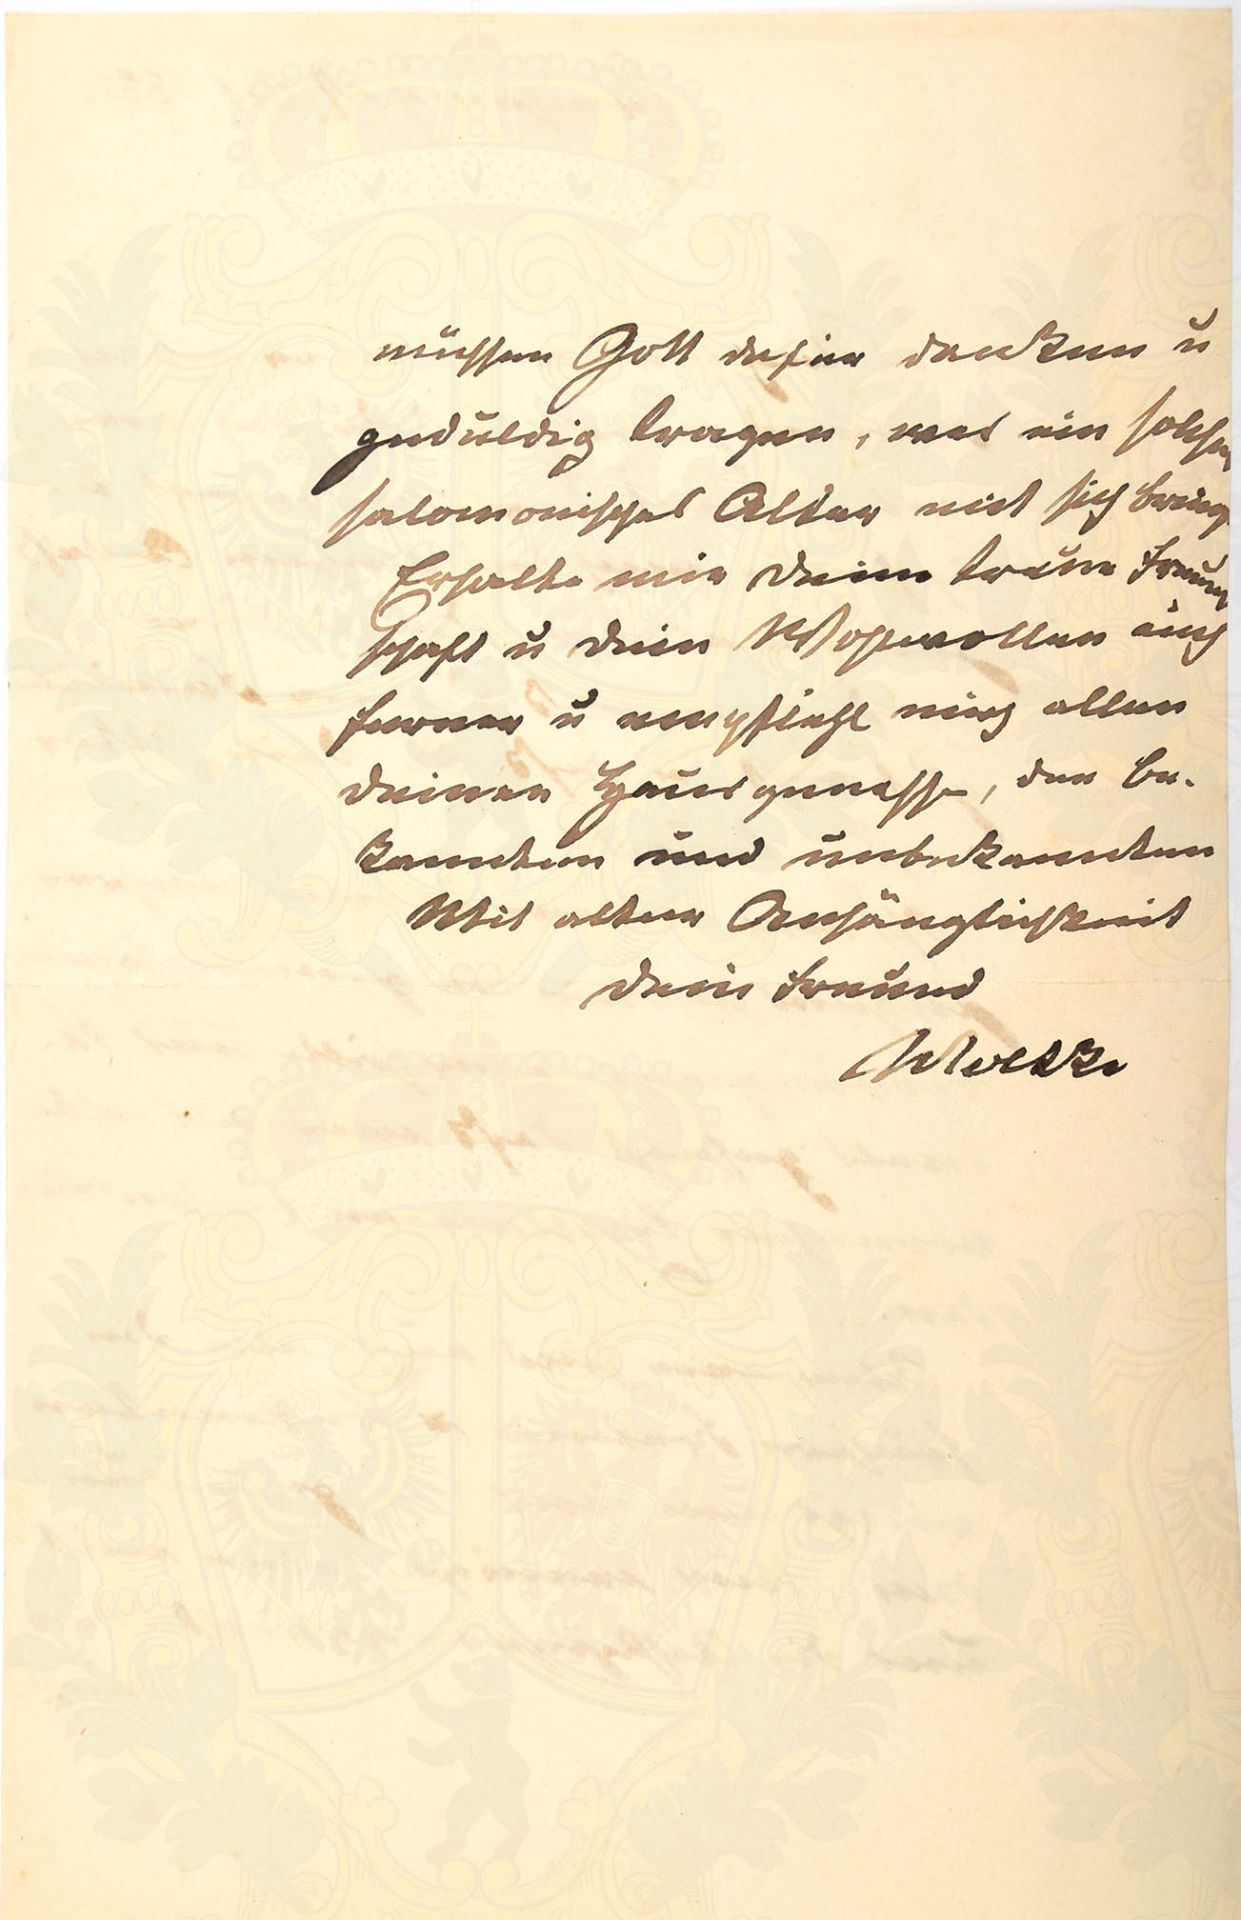 müssen Gott dafür danken u
geduldig tragen, was ein solches
salomonisches Alter mit sich bringt
Erhalte mir deine treue Freund
schaft u dein Wohlwollen auch
ferner u empfiehl mich allen
deinen Hausgenossen, den be-
kannten und unbekannten
Mit alter Anhänglichkeit
dein Freund
Moltke